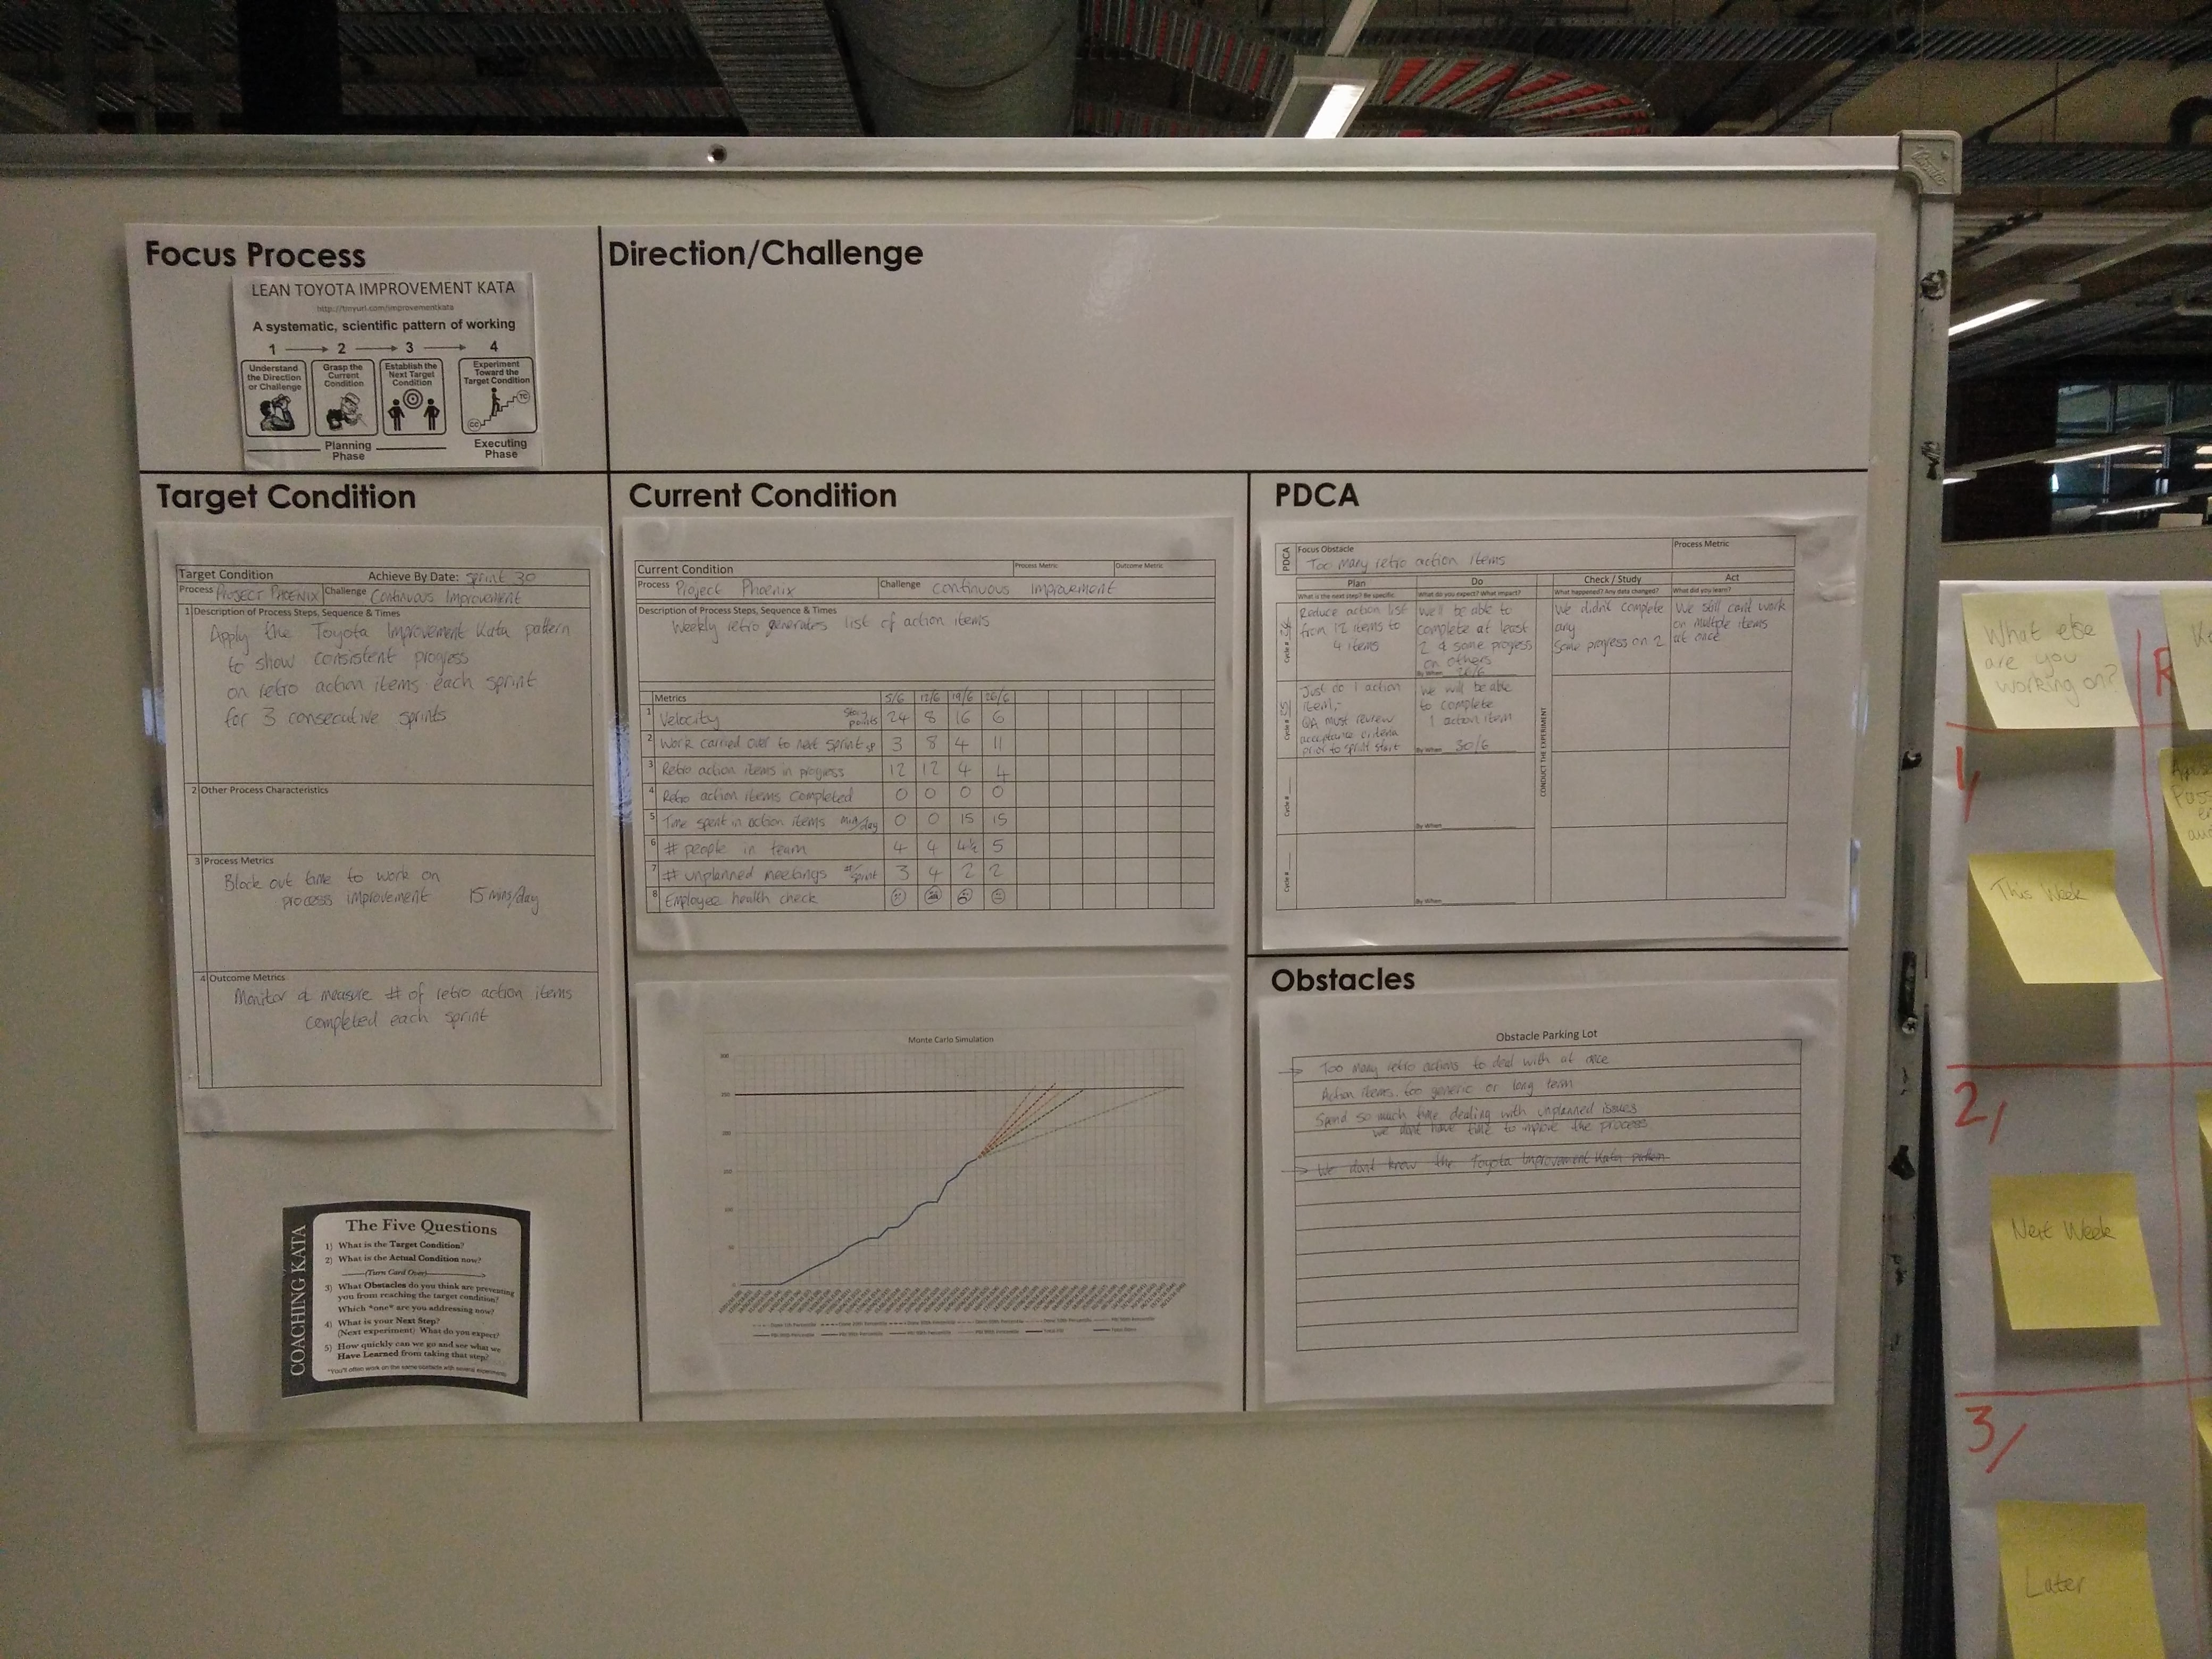 Focus Process
LEAN TOYOTA IMPROVEMENT KATA
http://tinyurl.com/improvementkata
A systematic, scientific pattern of working
1 2 3 4
Understand the Direction or Challenge
Grasp the Current Condition
Establish the Next Target Condition
Experiment Toward the Target Condition
TC
CC
Planning Phase
Executing Phase
Direction/Challenge
Target Condition
Target Condition Achieve By Date: Sprint 30
Process PROJECT PHOENIX Challenge Continuous Improvement
1 Description of Process Steps, Sequence & Times
Apply the Toyota Improvement Kata pattern
to show consistent progress
on retro action items each sprint
for 3 consecutive sprints
2 Other Process Characteristics
3 Process Metrics
Block out time to work on
process improvement 15 mins/day
4 Outcome Metrics
Monitor & measure # of retro action items
completed each sprint
COACHING KATA
The Five Questions
1) What is the Target Condition?
2) What is the Actual Condition now?
(Turn Card Over)
3) What Obstacles do you think are preventing
you from reaching the target condition?
Which *one* are you addressing now?
4) What is your Next Step?
(Next experiment) What do you expect?
5) How quickly can we go and see what we
Have Learned from taking that step?
*You'll often work on the same obstacle with several experiments
Current Condition
Current Condition Process Metric Outcome Metric
Process Project Phoenix Challenge continuous improvement
Description of Process Steps, Sequence & Times
Weekly retro generates list of action items
Metrics 5/6 12/6 19/6 26/6
1 Velocity Story points 24 8 16 6
2 Work carried over to next sprint sp 3 8 4 11
3 Retro action items in progress 12 12 4 4
4 Retro action items completed 0 0 0 0
5 Time spent in action items min/day 0 0 15 15
6 # people in team 4 4 4½ 5
7 # unplanned meetings #/sprint 3 4 2 2
8 Employee health check
Monte Carlo Simulation
PDCA
PDCA
Focus Obstacle
Too many retro action items
Process Metric
Plan Do Check / Study Act
What is the next step? Be specific What do you expect? What impact? What happened? Any data changed? What did you learn?
Reduce action list
from 12 items to
4 items
We'll be able to
complete at least
2 & some progress
on others
By When
We didn't complete
any
Some progress on 2
We still can't work
on multiple items
at once
Just do 1 action
item,-
QA must review
acceptance criteria
prior to sprint start
We will be able
to complete
1 action item
By When 30/6
CONDUCT THE EXPERIMENT
Cycle #
By When
Cycle #
By When
Obstacles
Obstacle Parking Lot
Too many retro actions to deal with at once
Action items too generic or long term
Spend so much time dealing with unplanned issues
we dont have time to improve the process
We dont know the Toyota Improvement Kata pattern
What else
are you
working on?
1,
This Week
2,
Next Week
3,
Later